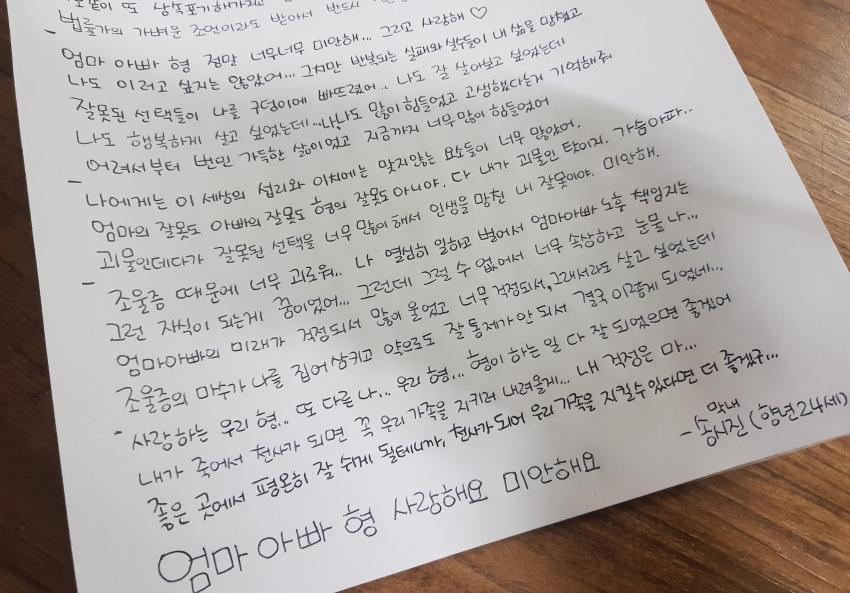 또 상속포기해가지고
법률가의 가벼운 조언이라도 받아서 반드시
- 엄마 아빠 형 정말 너무너무 미안해... 그리고 사랑해 ♡
나도 이러고 싶지는 않았어... 그치만 반복되는 실패와 실수들이 내 삶을 망쳤고
잘못된 선택들이 나를 구덩이에 빠뜨렸어.. 나도 잘 살아보고 싶었는데
나도 행복하게 살고 싶었는데... 나도 많이 힘들었고 고생했다는거 기억해줘
어려서부터 번민 가득한 삶이었고 지금까지 너무 많이 힘들었어
- 나에게는 이 세상의 섭리와 이치에는 맞지않는 요소들이 너무 많았어.
엄마의 잘못도 아빠의 잘못도 형의 잘못도 아니야. 다 내가 괴물인 탓이지. 가슴아파...
괴물인데다가 잘못된 선택을 너무 많이해서 인생을 망친 내 잘못이야. 미안해.
- 조울증 때문에 너무 괴로워.. 나 열심히 일하고 벌어서 엄마아빠 노후 책임지는
그런 자식이 되는게 꿈이었어... 그런데 그럴 수 없어서 너무 속상하고 눈물 나...
엄마아빠의 미래가 걱정되서 많이 울었고 너무 걱정되서, 그래서라도 살고 싶었는데
조울증의 마수가 나를 집어 삼키고 약으로도 잘 통제가 안 되서 결국 이렇게 되었네...
- 사랑하는 우리 형.. 또 다른 나... 우리 형... 형이 하는 일 다 잘 되었으면 좋겠어
내가 죽어서 천사가 되면 꼭 우리 가족을 지키러 내려올게... 내 걱정은 마...
좋은 곳에서 평온히 잘 쉬게 될테니까, 천사가 되어 우리 가족을 지킬 수 있다면 더 좋겠구...
막내
- 송시진 (향년 24세)
엄마 아빠 형 사랑해요 미안해요